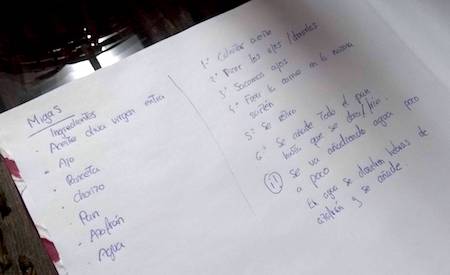 Migas
Ingredientes
· Aceite oliva virgen extra
· Ajo
· Panceta
· Chorizo
· Pan
· Azafrán
· Agua
1º Calentar aceite
2º Picar los ajos / dorarlos
3º Sacamos ajos
4º Freír la carne en la misma
sartén
5º Se retira
6º Se añade todo el pan
hasta que se dore / fría
Se va añadiendo agua poco
a poco
En agua se disuelven hebras de
azafrán y se añade.